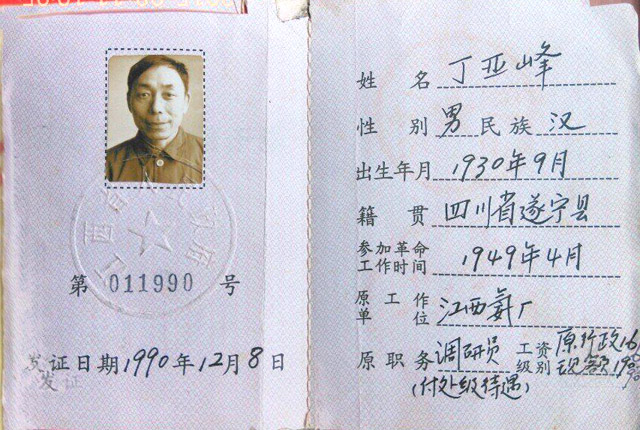 第 011990 号
发证日期 1990年12月8日
发证
姓名 丁亚峰
性别 男 民族 汉
出生年月 1930年9月
籍贯 四川省遂宁县
参加革命工作时间 1949年4月
原工作单位 江西氨厂
原职务 调研员 工资级别 原行政16
(付处级待遇) 现额190